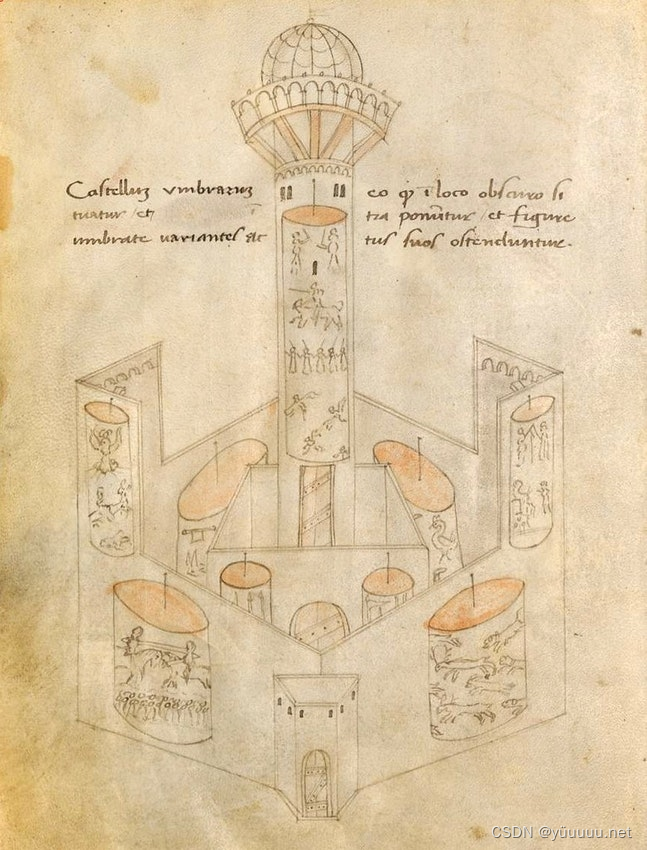 Castellum umbrarum eo qp i loco obscuro si
tuatur et ī tra ponūtur et figure
umbrate variantes ac tus suos ostenduntur.
CSDN @yüuuuu.net